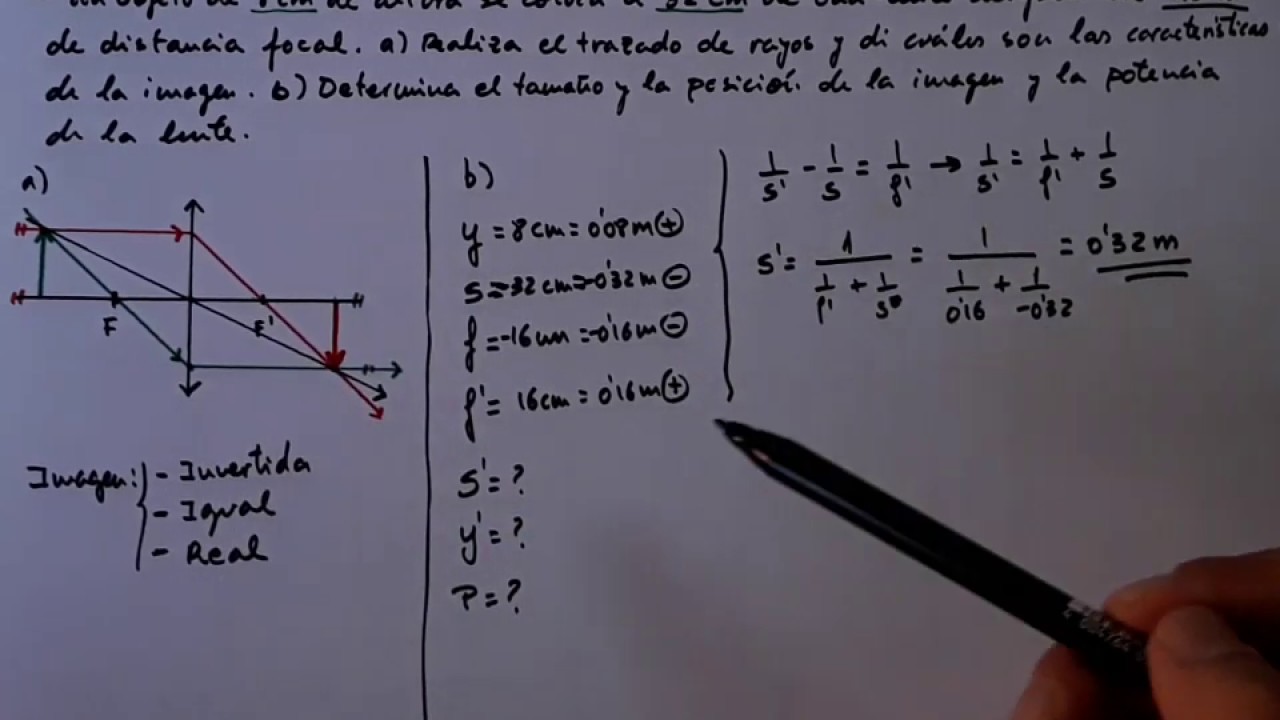 de distancia focal. a) Realiza el trazado de rayos y di cuáles son las características
de la imagen. b) Determina el tamaño y la posición de la imagen y la potencia
de la lente.
a)
F
F'
Imagen: - Invertida
- Igual
- Real
b)
y = 8cm = 0'08m (+)
s = 32cm = -0'32m (-)
f = -16cm = -0'16m (-)
f' = 16cm = 0'16m (+)
s' = ?
y' = ?
P = ?
1/s' - 1/s = 1/f' → 1/s' = 1/f' + 1/s
s' = 1/(1/f' + 1/s) = 1/(1/0'16 + 1/-0'32) = 0'32 m